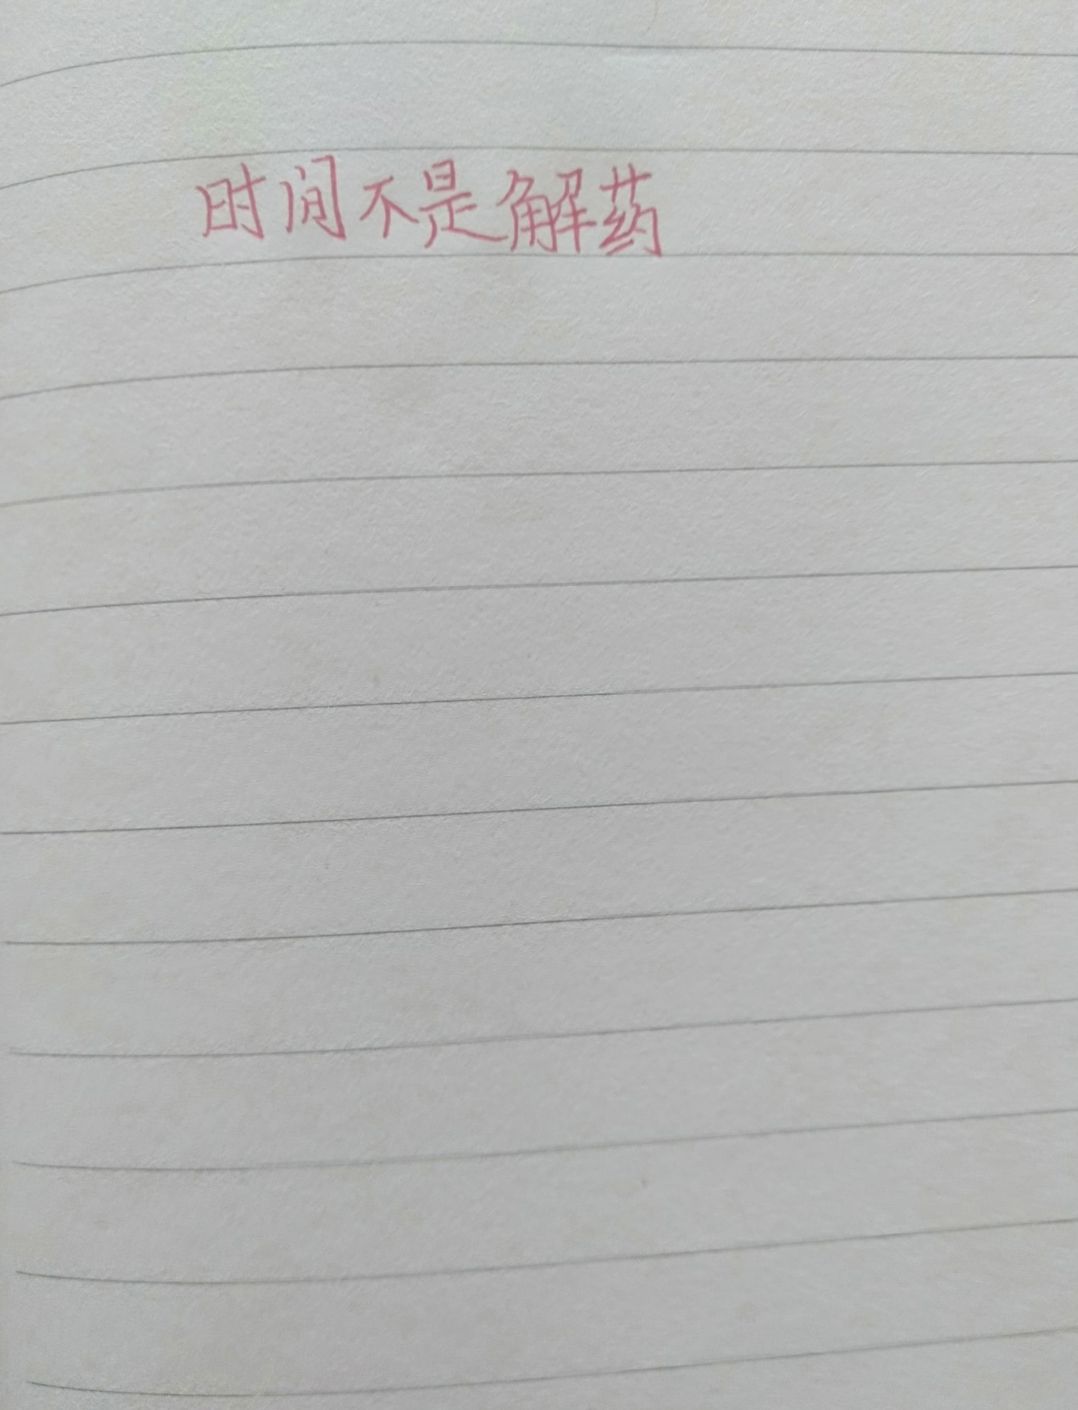 时间不是解药